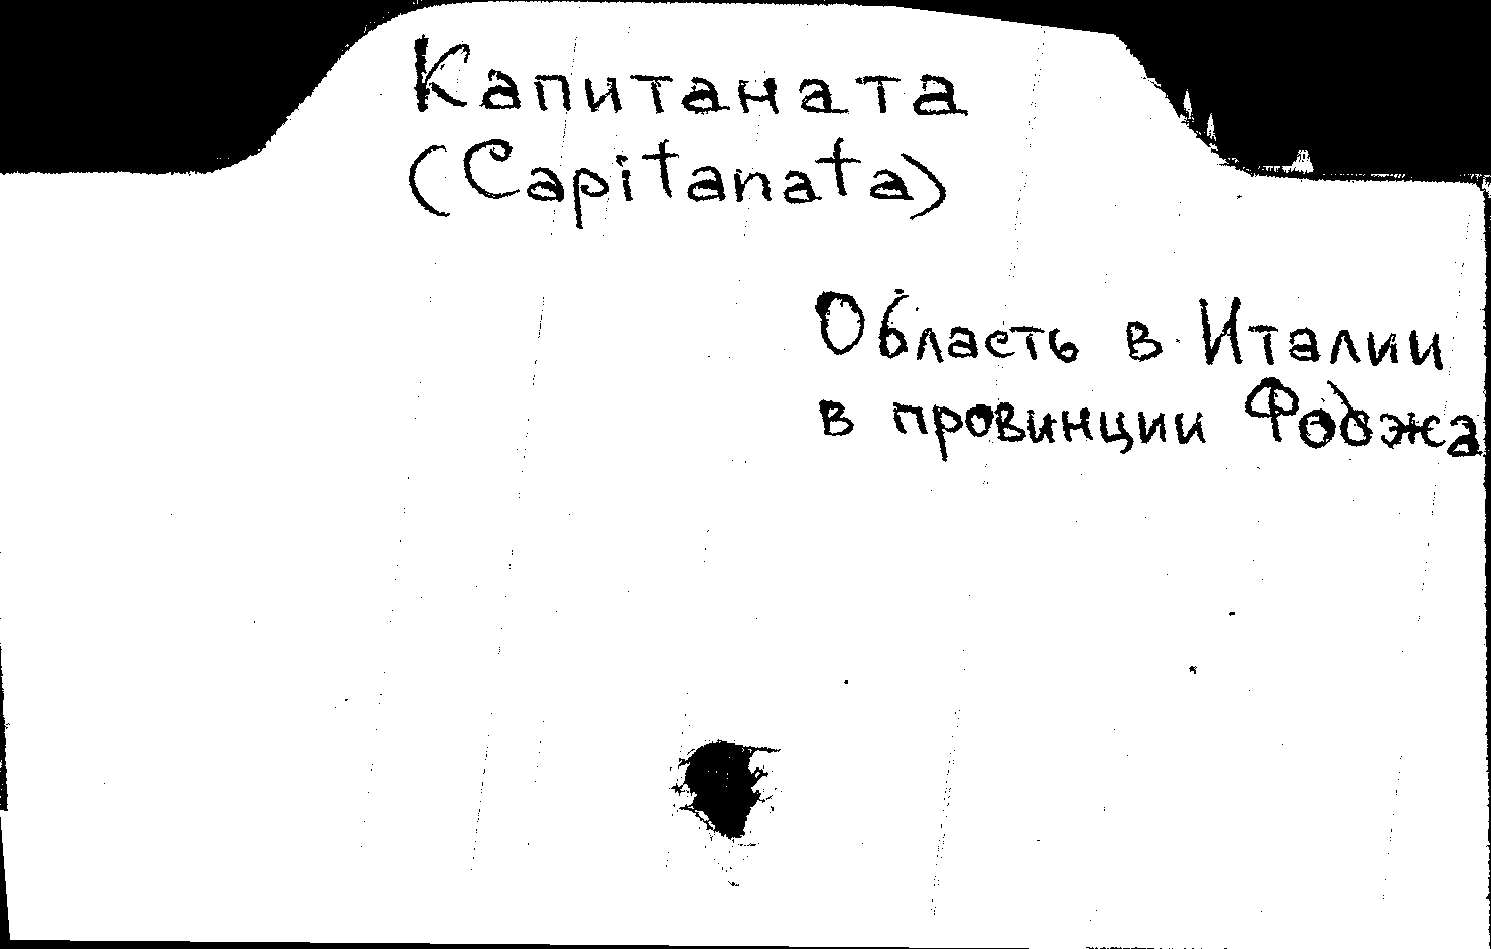 Капитаната
(Capitanata)
Область в Италии
в провинции Фоджа